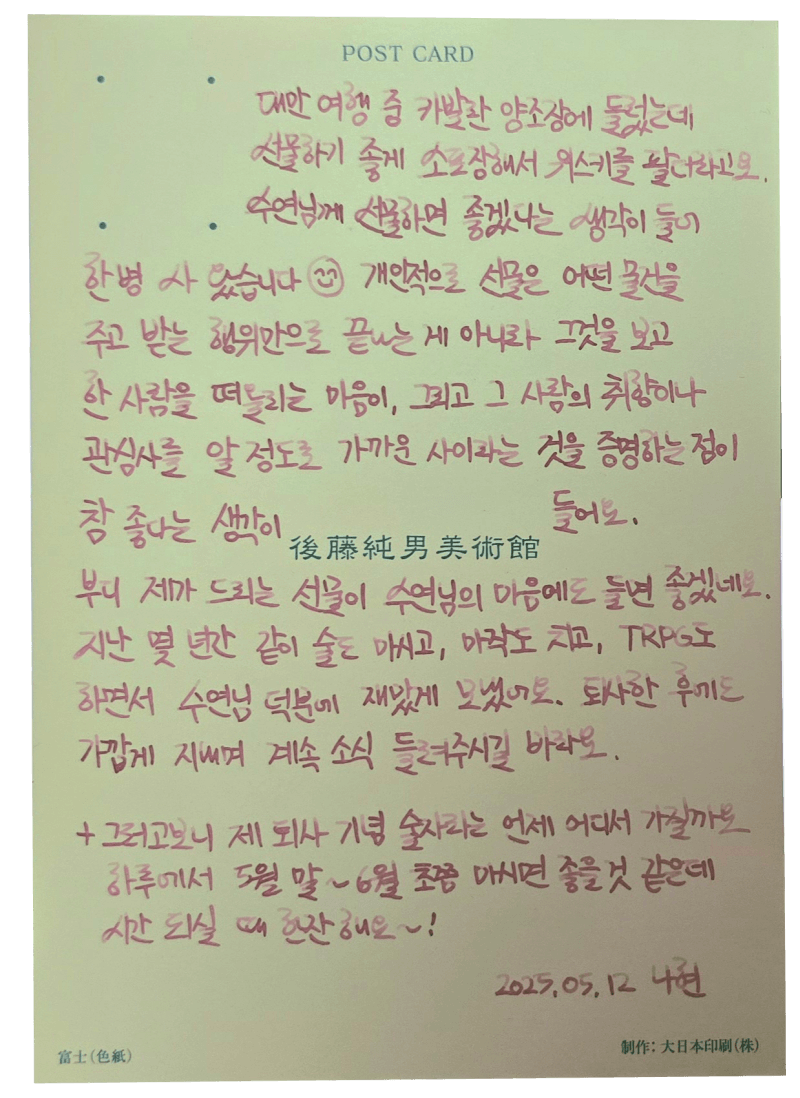 POST CARD
대만 여행 중 카발란 양조장에 들렀는데
선물하기 좋게 소포장해서 위스키를 팔더라고요.
수연님께 선물하면 좋겠다는 생각이 들어
한 병 사 왔습니다 ☺ 개인적으로 선물은 어떤 물건을
주고 받는 행위만으로 끝나는 게 아니라 그것을 보고
한 사람을 떠올리는 마음이, 그리고 그 사람의 취향이나
관심사를 알 정도로 가까운 사이라는 것을 증명하는 점이
참 좋다는 생각이 들어요.
後藤純男美術館
부디 제가 드리는 선물이 수연님의 마음에도 들면 좋겠네요.
지난 몇 년간 같이 술도 마시고, 마작도 치고, TRPG도
하면서 수연님 덕분에 재밌게 보냈어요. 퇴사한 후에도
가깝게 지내며 계속 소식 들려주시길 바라요.
+ 그러고보니 제 퇴사 기념 술자리는 언제 어디서 가질까요
하루에서 5월 말 ~ 6월 초쯤 마시면 좋을 것 같은데
시간 되실 때 한잔 해요~!
2025.05.12 나현
富士(色紙)
制作: 大日本印刷(株)